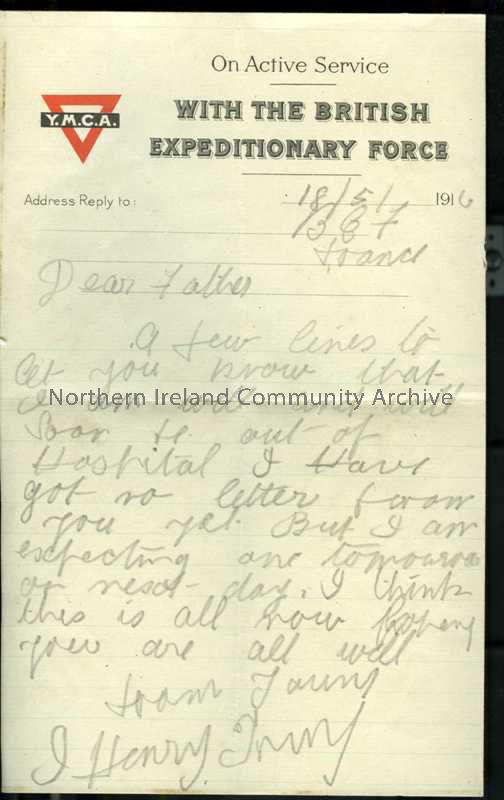 On Active Service
WITH THE BRITISH
EXPEDITIONARY FORCE
Y.M.C.A.
Address Reply to:
18/5/ 1916
B E F
France
Dear Father
A few lines to
let you know that
I am well and will
Northern Ireland Community Archive
soon be out of
Hospital I Have
got no letter from
you yet But I am
expecting one tomorrow
or next day. I think
this is all now hoping
you are all well
from
J Henry